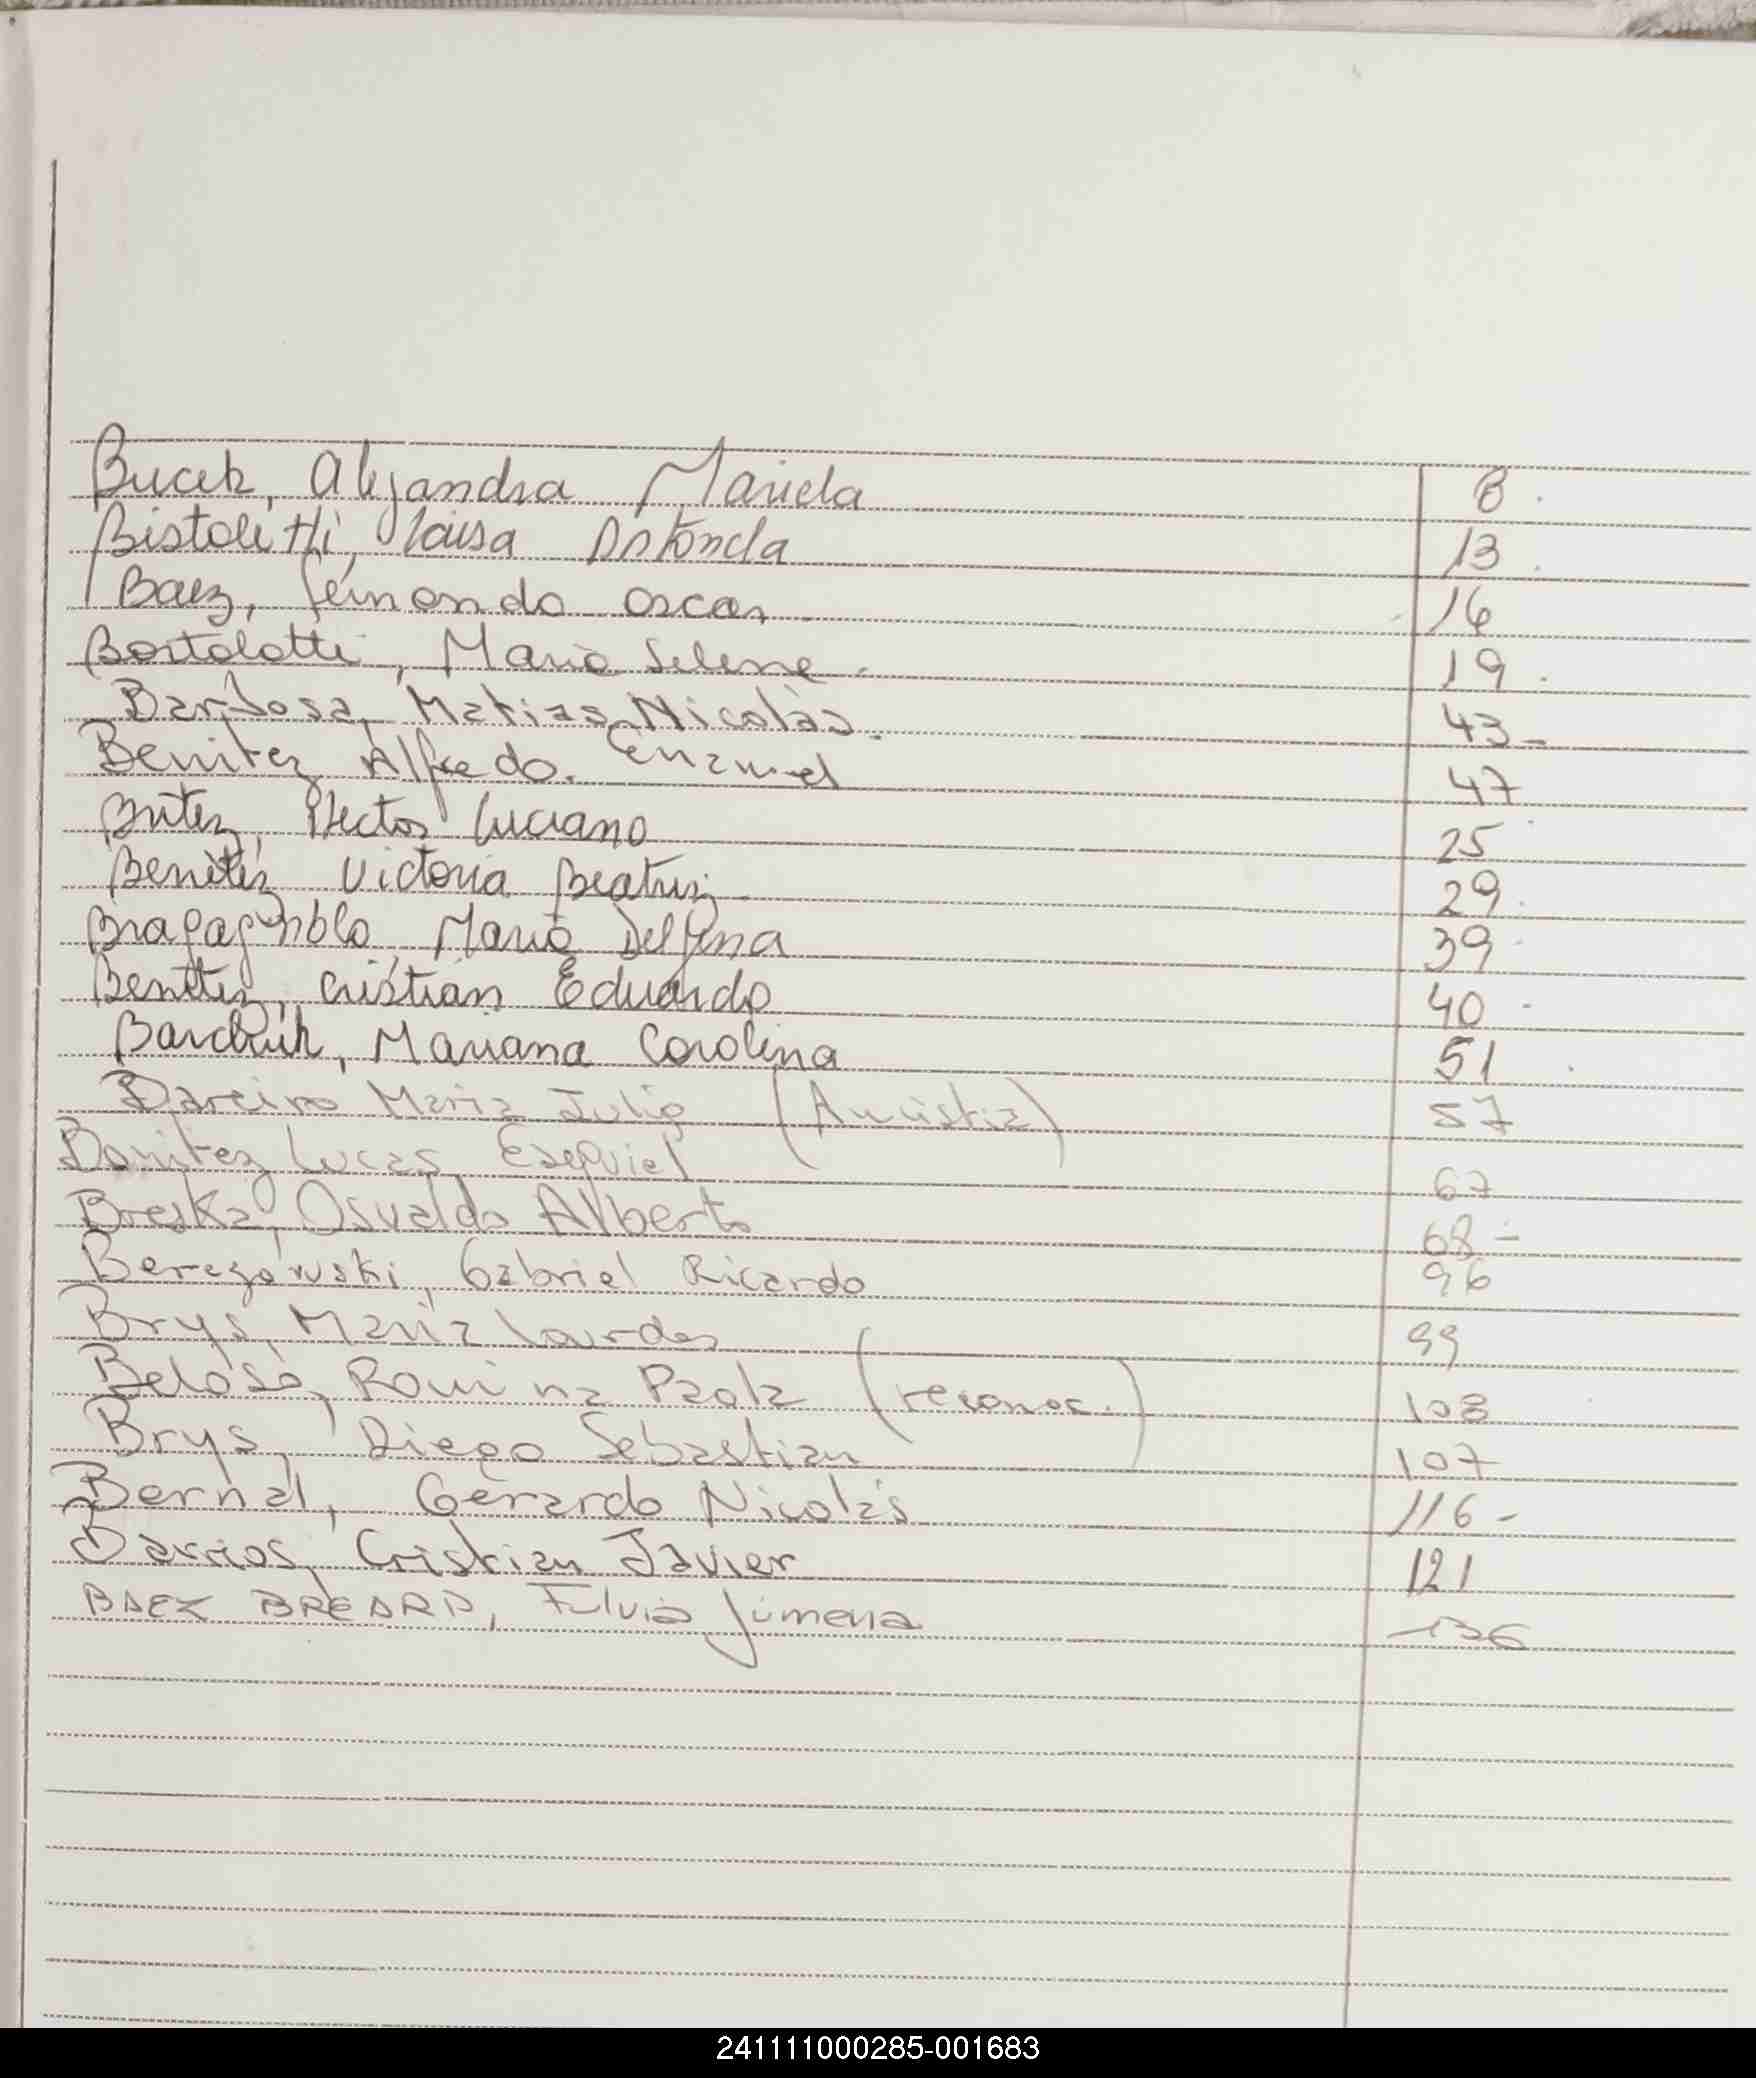 Bucek, Alejandra Mariela 8.
Bistoletti, Laisa Antonela 13.
Baez, Fernando Oscar 16
Bortolotti, Maria Selene. 19.
Barbosa, Matias Nicolás. 43-
Benitez Alfredo. Emanuel 47
Britez, Hector Luciano 25
Benitez Victoria Beatriz 29.
Bragagnolo, Maria Delfina 39
Benitez, Cristian Eduardo 40-
Mariana Carolina 51.
Bareiro Maria Julia (Amnistia) 57
Benitez Lucas Ezequiel 67
Breska, Osvaldo Alberto 68-
Berezowski, Gabriel Ricardo 96
Brys, Maria Lourdes 99
Beloso, Romina Paola (reconoc.) 108
Brys, Diego Sebastian 107
Bernal, Gerardo Nicolás 116-
Barrios, Cristian Javier 121
BAEZ BREARD, Fulvia Jimena 136
241111000285-001683